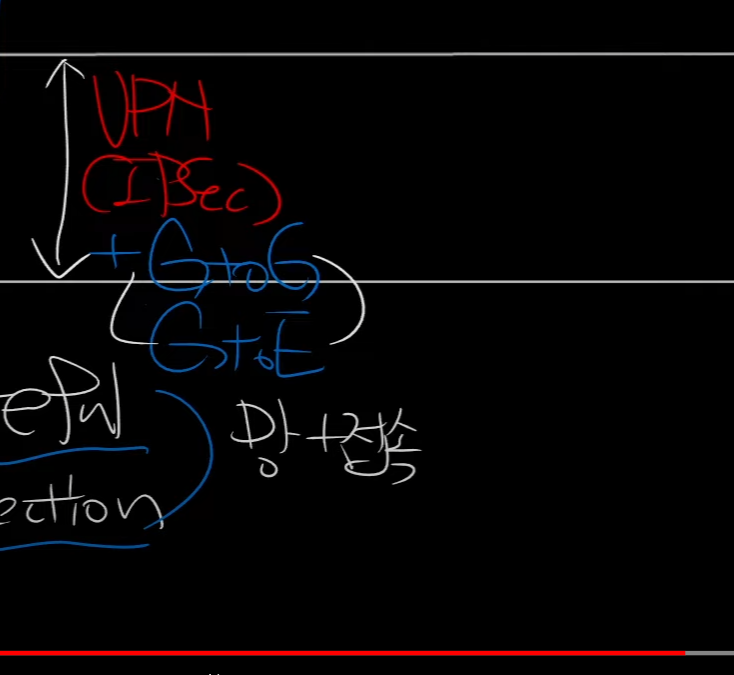 VPN
(IPSec)
+ GtoG
GtoE
ection
망+접속